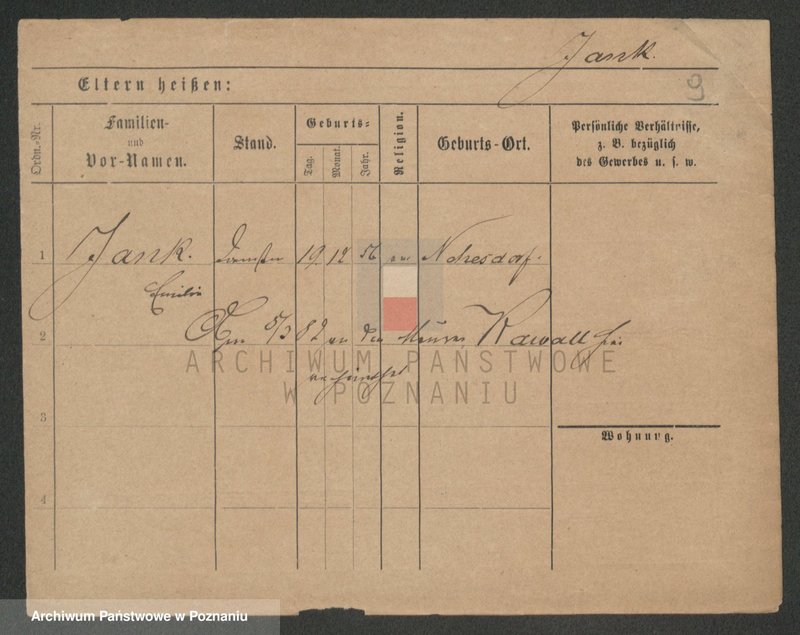 Jank.
9
Eltern heißen:
Ordn.-Nr.
Familien-
und
Vor-Namen.
Stand.
Geburts-
Tag.
Monat.
Jahr.
Religion.
Geburts-Ort.
Persönliche Verhältnisse,
z. B. bezüglich
des Gewerbes u. s. w.
1 Jank. 19 12 56 ev
Emilie
2 Am 5/3 82 an den Maurer Kawall
ARCHIWUM PAŃSTWOWE
W POZNANIU
3
Wohnung.
4
Archiwum Państwowe w Poznaniu